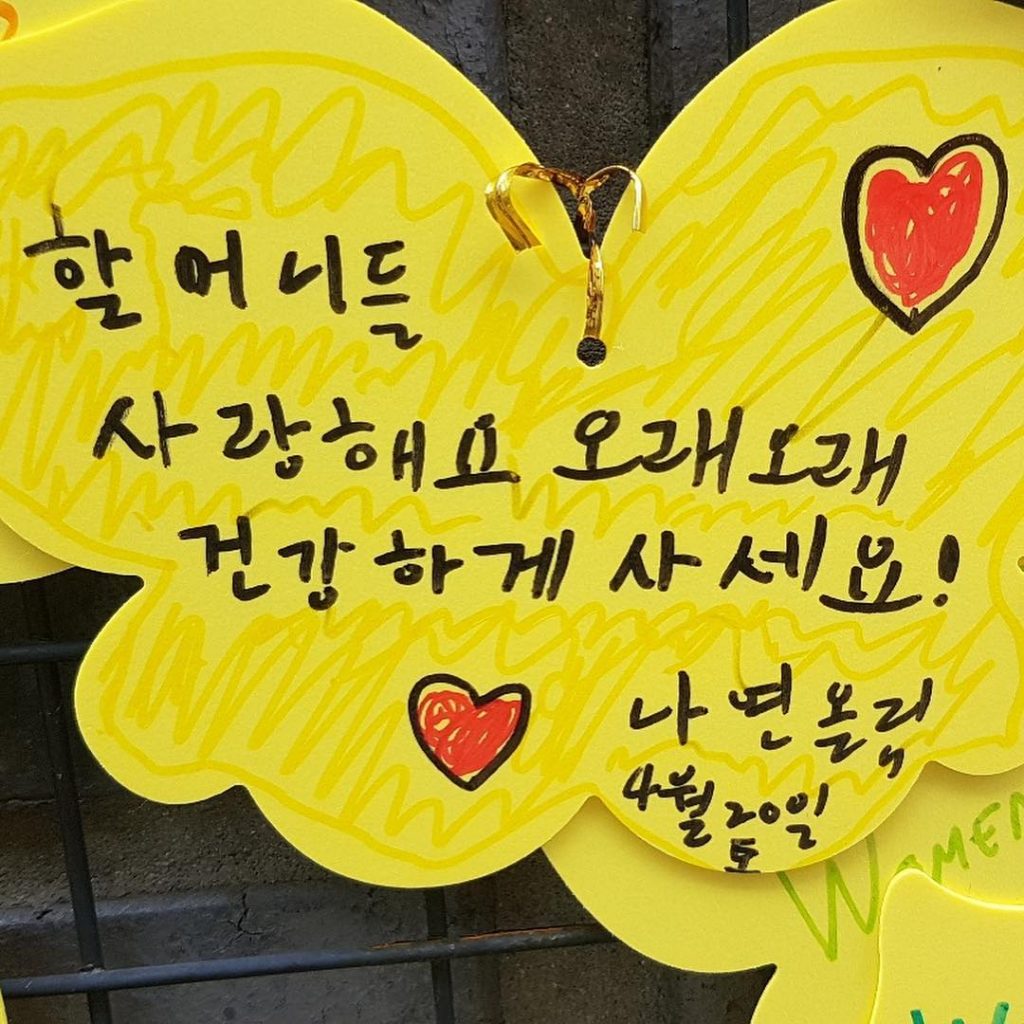 할머니들
사랑해요 오래오래
건강하게 사세요!
나연올림
4월 20일
토
WOMEN